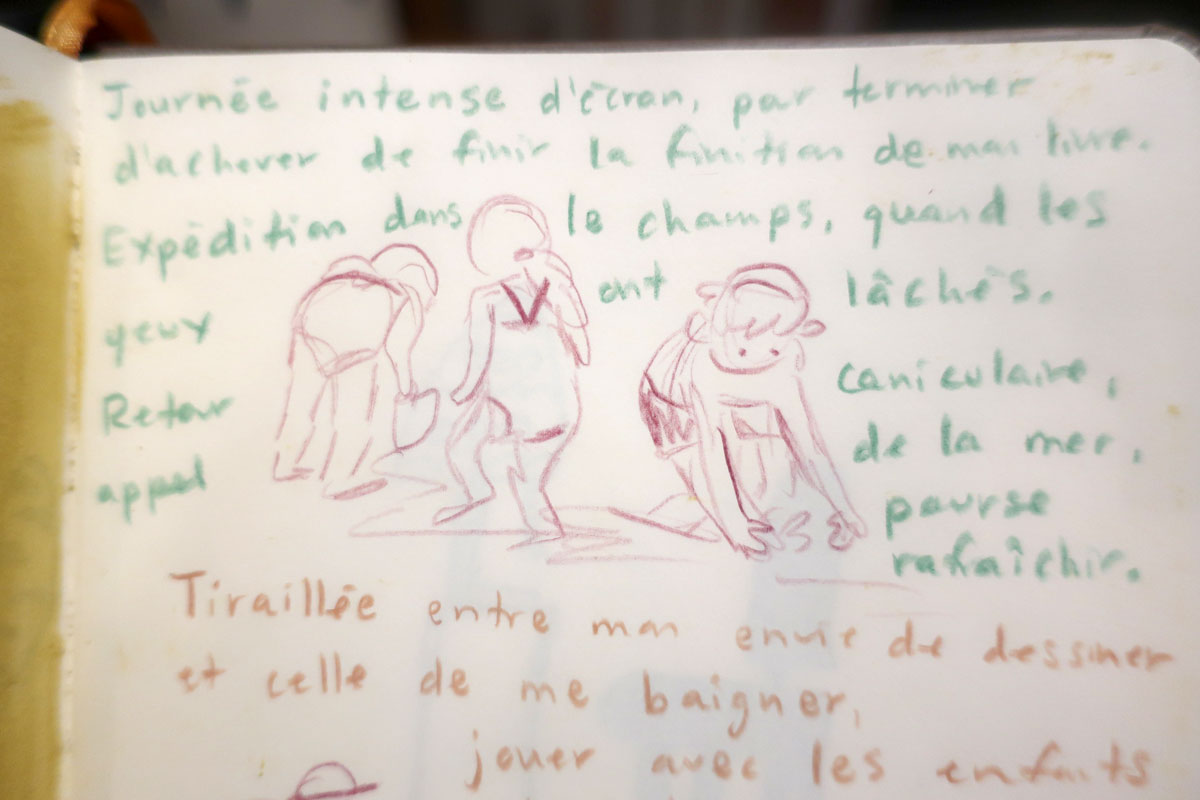 Journée intense d'écran, par terminer
d'achever de finir la finition de mon livre.
Expédition dans le champs, quand les
yeux ont lâchés.
Retour caniculaire,
appel de la mer,
pour se
rafraîchir.
Tiraillée entre mon envie de dessiner
et celle de me baigner,
jouer avec les enfants